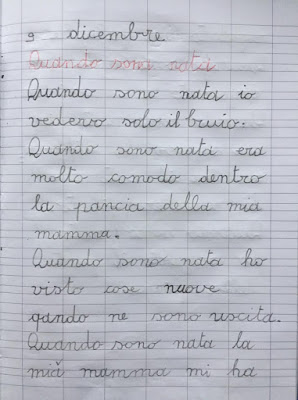 9 dicembre
Quando sono nata
Quando sono nata io
vedevo solo il buio.
Quando sono nata era
molto comodo dentro
la pancia della mia
mamma.
Quando sono nata ho
visto cose nuove
qando ne sono uscita.
Quando sono nata la
mia mamma mi ha